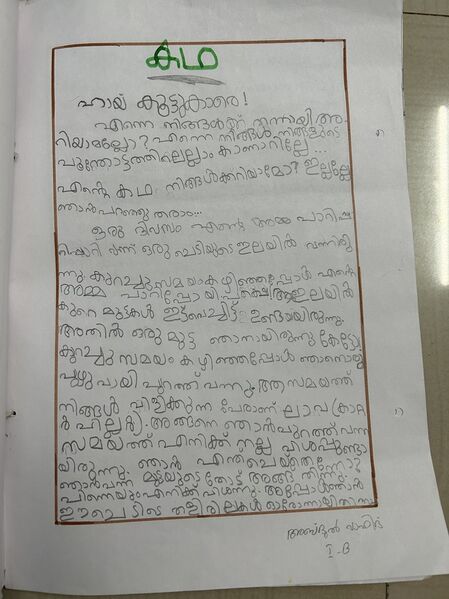 കഥ
ഹായ് കൂട്ടുകാരെ!
എന്നെ നിങ്ങൾക്ക് നന്നായി അ
റിയാമല്ലോ? എന്നെ നിങ്ങൾ നിങ്ങളുടെ
പൂന്തോട്ടത്തിലെല്ലാം കാണാറില്ലേ ...
എൻ്റെ കഥ നിങ്ങൾക്കറിയാമോ? ഇല്ലല്ലേ
ഞാൻ പറഞ്ഞു തരാം...
ഒരു ദിവസം എൻ്റെ അമ്മ പാറിപ്പ
റിപ്പാറി വന്ന് ഒരു ചെടിയുടെ ഇലയിൽ വന്നിരു
ന്നു. കുറച്ചുസമയം കഴിഞ്ഞപ്പോൾ എൻ്റെ
അമ്മ പാറിപ്പോയി പക്ഷെ ആ ഇലയിൽ
കുറെ മുട്ടകൾ ഇട്ടുവെച്ചിട്ട് ഉണ്ടായിരുന്നു.
അതിൽ ഒരു മുട്ട ഞാനായിരുന്നു കേട്ടോ.
കുറച്ചു സമയം കഴിഞ്ഞപ്പോൾ ഞാനൊരു
പുഴു വായി പുറത്ത് വന്നു. ആ സമയത്ത്
നിങ്ങൾ വിളിക്കുന്ന പേരാണ് ലാവ (കാറ്റ
ർ പില്ലർ). അങ്ങനെ ഞാൻ പുറത്ത് വന്ന
സമയത്ത് എനിക്ക് നല്ല വിശപ്പുണ്ടാ
യിരുന്നു. ഞാൻ എന്തുചെയ്തെന്നോ?
ഞാൻ വന്ന മുട്ടയുടെ തോട് അങ്ങ് തിന്നു.
പിന്നെയും എനിക്ക് വിശന്നു. അപ്പോൾ ഞാൻ
ഈ ചെടിടെ തളിരിലകൾ ഓരോന്നായി തിന്നു
അബ്ദുൽ വാഹിദ്
I-B